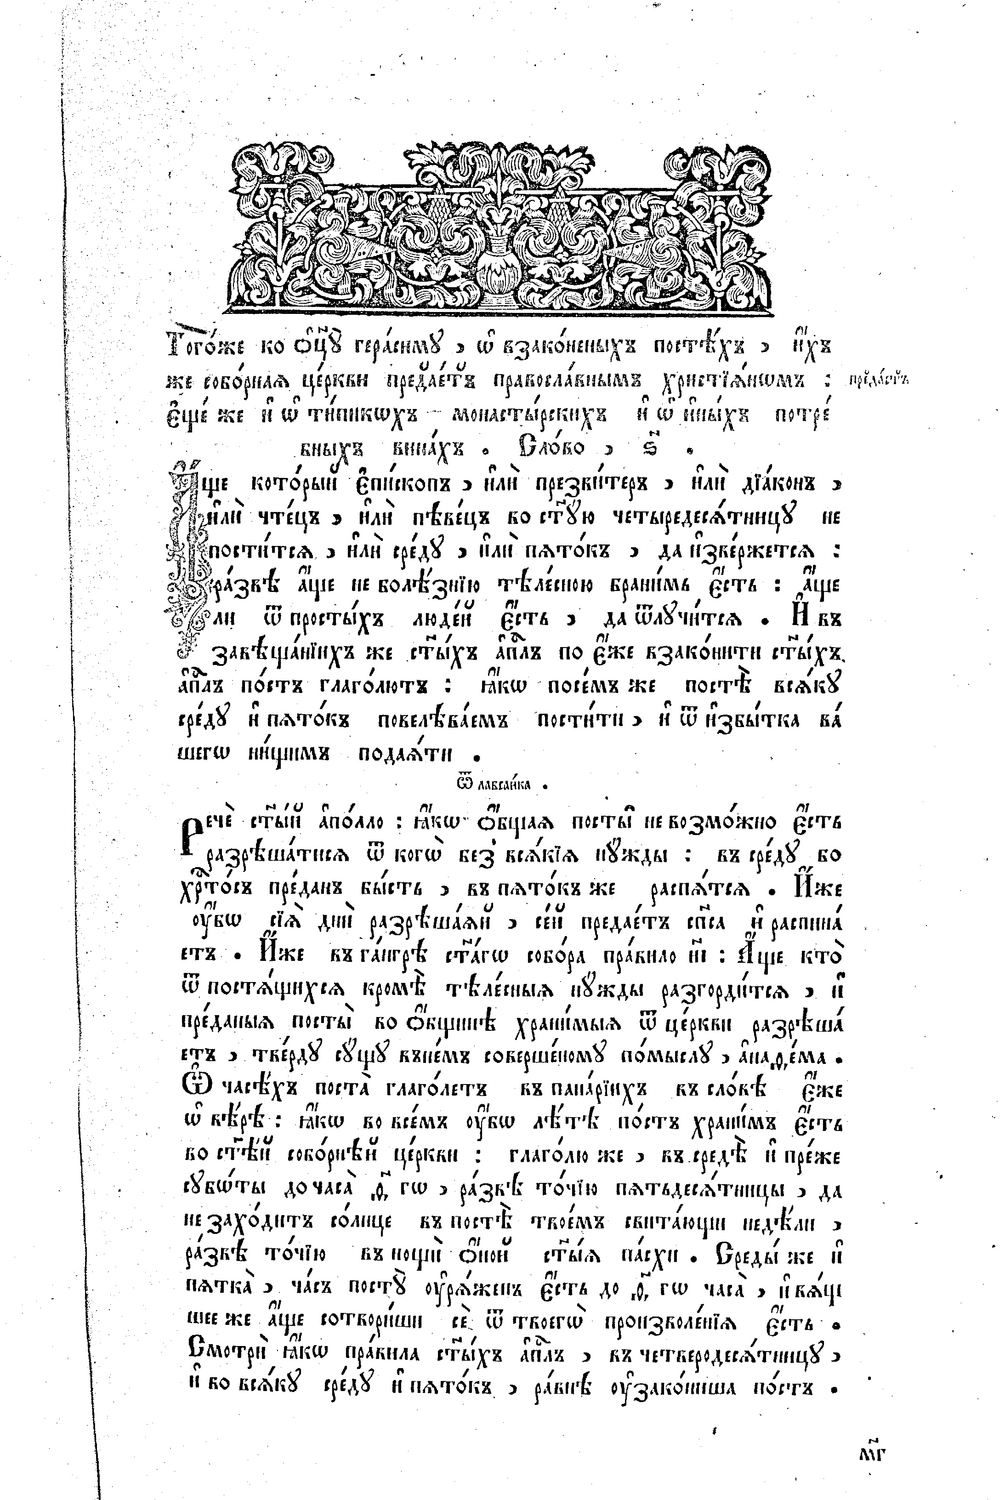 Тогѡ́же ко ѻ҆ц҃ꙋ̀ гера́симꙋ , ѡ҆ взако́неныхъ посте́хъ , и҆́хъ
же собо́рнаѧ це́ркви предае́тъ правосла́внымъ христїѧ́нѡмъ :
преда́стъ
Е҆щѐ же и҆ ѡ҆ ти́пикѡхъ монасты́рскихъ и҆ ѡ҆ и҆ны́хъ потре́
бныхъ вина́хъ . Сло́во , ѕ҃ .
А҆́ще кото́рый е҆пи́скопъ , и҆лѝ презви́теръ , и҆лѝ дїа́конъ ,
и҆лѝ чте́цъ , и҆лѝ пѣве́цъ во ст҃ꙋ́ю четыредесѧ́тницꙋ не
пости́тсѧ , и҆лѝ сре́дꙋ , и҆лѝ пѧто́къ , да и҆зве́ржетсѧ :
ра́звѣ а҆́ще не болѣ́знїю тѣле́сною брани́мь є҆́сть : а҆́ще
ли ѿ просты́хъ люде́й є҆́сть , да ѿлꙋчи́тсѧ . И҆ въ
завѣща́нїихъ же ст҃ы́хъ а҆пⷭ҇лъ по є҆́же взакони́ти ст҃ы́хъ
а҆пⷭ҇лъ по́стъ глаго́лютъ : ꙗ҆́кѡ посе́мъ же постѣ̀ всѧ́кꙋ
сре́дꙋ и҆ пѧто́къ повелѣва́емъ пости́ти , и҆ ѿ и҆збы́тка ва́
шегѡ ни́щимъ подаѧ́ти .
Ѿ лавса́ика .
Речѐ ст҃ы́й а҆по́лло : ꙗ҆́кѡ ѻ҆́бщаѧ посты̀ не возмо́жно є҆́сть
разрѣша́тисѧ ѿ когѡ̀ без̾ всѧ́кїѧ нꙋ́жды : въ сре́дꙋ бо
хрⷭ҇то́съ пре́данъ бы́сть , въ пѧто́къ же распѧ́тсѧ . И҆́же
ᲂу҆́бѡ сїѧ̀ днѝ разрѣша́ѧй , се́й предае́тъ сп҃са и҆ распина́
етъ . И҆́же въ га́нгрѣ ст҃а́гѡ собо́ра пра́вило иі҃ : А҆́ще кто̀
ѿ постѧ́щихсѧ кромѣ̀ тѣле́сныѧ нꙋ́жды разгорди́тсѧ , и҆
пре́даныѧ посты̀ во ѻ҆́бщинѣ храни́мыѧ ѿ це́ркви разрѣша́
етъ , тве́рдꙋ сꙋ́щꙋ въне́мъ соверше́номꙋ по́мыслꙋ , а҆на́ѳема .
Ѡ҆ часѣ́хъ поста̀ глаго́летъ въ пана́рїихъ въ сло́вѣ є҆́же
ѡ҆ вѣ́рѣ : ꙗ҆́кѡ во все́мъ ᲂу҆́бѡ лѣ́тѣ по́стъ храни́мъ є҆́сть
во ст҃ѣ́й собо́рнѣй це́ркви : глаго́лю же , въ средѣ̀ и҆ пре́же
сꙋбѡ́ты до часа̀ ѳ҃ гѡ , ра́звѣ то́чїю пѧтьдесѧ́тницы , да
не захо́дитъ со́лнце въ постѣ̀ твое́мъ свита́ющи недѣ́ли ,
ра́звѣ то́чїю въ нощѝ ѻ҆́ной ст҃ы́ѧ па́схи . Среды́ же и҆
пѧтка̀ , ча́съ постꙋ̀ ᲂу҆рѧ́женъ є҆́сть до ѳ҃ гѡ часа̀ , и҆ вѧ́щ
шее же а҆́ще сотвори́ши сѐ ѿ твоегѡ̀ произволе́нїѧ є҆́сть .
Смотрѝ ꙗ҆́кѡ пра́вила ст҃ы́хъ а҆пⷭ҇лъ , въ четверодесѧ́тницꙋ ,
и҆ во всѧ́кꙋ сре́дꙋ и҆ пѧто́къ , ра́внѣ ᲂу҆зако́ниша по́стъ .
мг҃